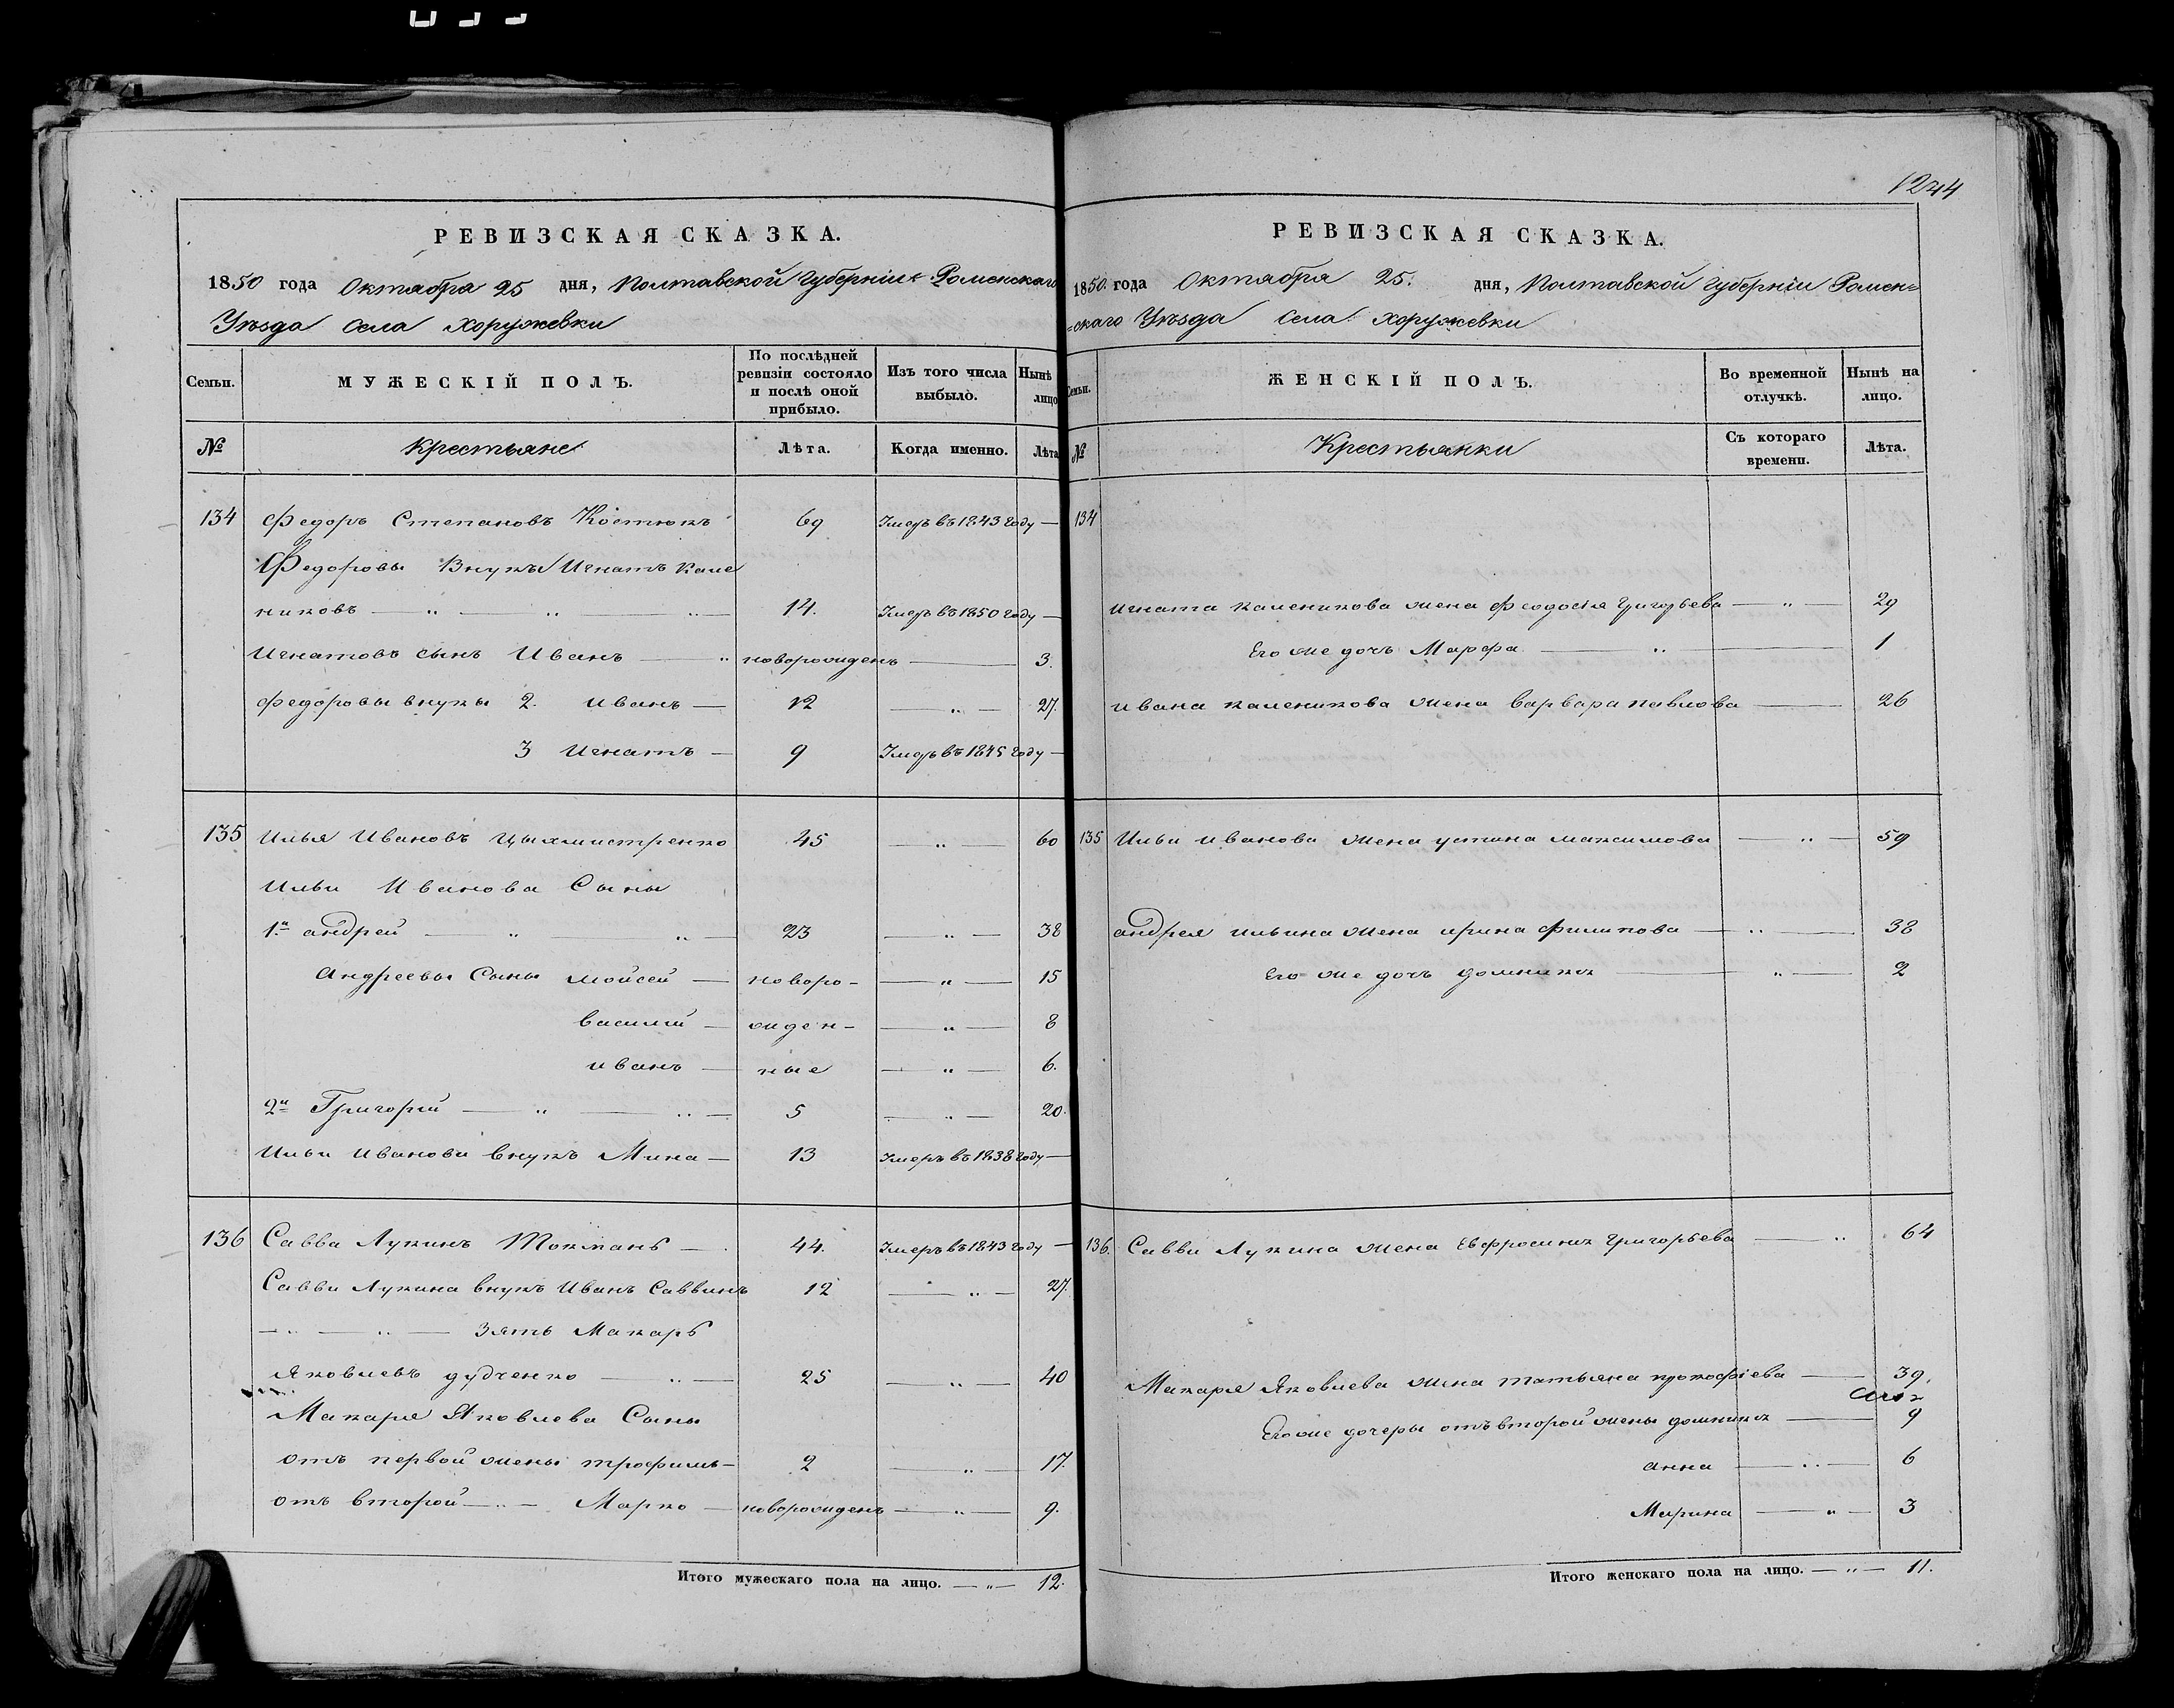 РЕВИЗСКАЯ СКАЗКА.
1850 года Октября 25 дня, Полтавской Губерніи Роменскаго
Уѣзда Села Хоружевки
Семьи. МУЖЕСКІЙ ПОЛЪ. По послѣдней ревизіи состояло и послѣ оной прибыло. Изъ того числа выбыло. Нынѣ лицо
№ Крестьяне Лѣта. Когда именно. Лѣта
134 Федоръ Степановъ Костюкъ 69 Умеръ въ 1843 году —
Федоровы Внукъ Игнатъ Кале
никовъ — „ — „ — „ — 14. Умеръ въ 1850 году —
Игнатовъ сынъ Иванъ — „ новорожденъ — 3.
Федоровы внуки 2. Иванъ — 12 — „ — 27.
3 Игнатъ — 9 Умеръ въ 1845 году —
135 Илья Ивановъ Цыхмистренко 45 — „ — 60
Ильи Иванова Сыны
1й андрей — „ — „ — 23 — „ — 38
Андреевы Сыны мойсей — новоро- — „ — 15
василій — жден- — „ — 8
иванъ — ные — „ — 6.
2й Григорій — „ — „ — 5 — „ — 20.
Ильи Иванова внукъ Мина — 13 Умеръ въ 1838 году —
136 Савва Лукинъ Токмань — . 44. Умеръ въ 1843 году —
Саввы Лукина внукъ Иванъ Саввинъ 12 — „ — 27.
— „ — „ — Зять Макаръ
Яковлевъ дудченко — „ — 25 — „ — 40
Макаря Яковлева Сыны
отъ первой жены трофимъ — 2 — „ — 17.
отъ второй — „ — Марко — новорожденъ — „ — 9.
Итого мужескаго пола на лицо. — „ — 12.
1244
РЕВИЗСКАЯ СКАЗКА.
1850 года Октября 25. дня, Полтавской Губерніи Ромен=
=скаго Уѣзда Села Хоружевки
Семьи. ЖЕНСКІЙ ПОЛЪ. Во временной отлучкѣ. Нынѣ на лицо.
№ Крестьянки Съ котораго времени. Лѣта.
134
Игната Каленикова жена Феодосія Григорьева — „ — 29
Его же дочь Марфа — „ — 1
Ивана Каленикова жена Варвара Павлова — 26
135 Ильи Иванова жена устина максимова — „ — 59
андрея ильина жена ирина филипова — „ — 38
Его же дочь домника — „ — 2
136. Саввы Лукина жена Евфросинія Григорьева — „ 64
Макаря Яковлева жена татьяна прокофіева — 39.
Его же дочеры отъ второй жены домника — 9
анна — „ — 6
Марина — „ — 3
Итого женскаго пола на лицо. — „ — 11.